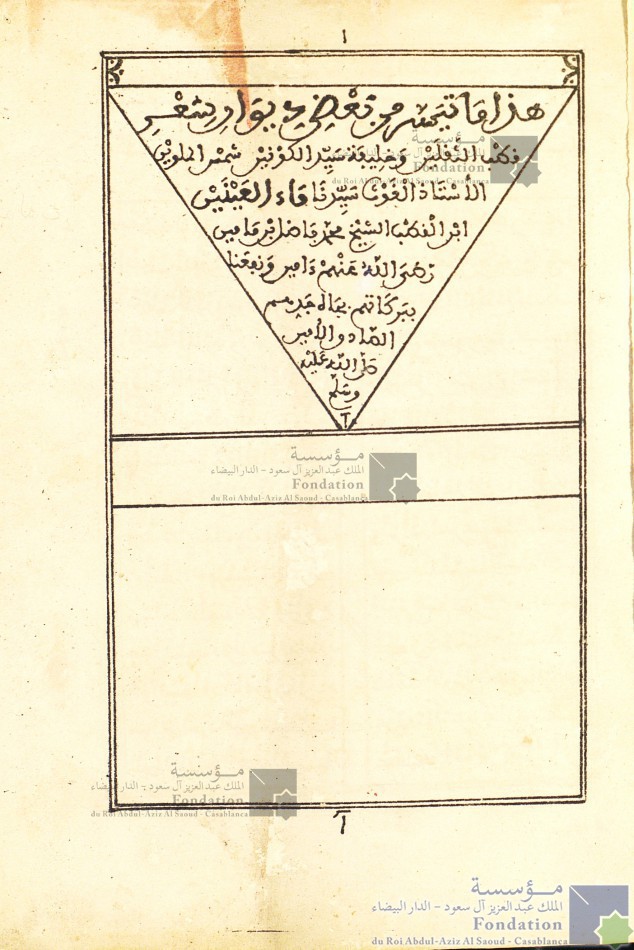 ١
هذا ما تيسر من تعض يد بوادر شعر
قطب الثقلين وخليفة سيد الكونين شمس الملوين
الأستاذ الغوث سيدنا ماء العينين
ابن القطب الشيخ محمد فاضل بن مامين
رضي الله عنهم ءامين ونفعنا
ببركاتهم بجاه جدهم
الصادق الأمين
صلى الله عليه
وسلم
مؤسسة
الملك عبد العزيز آل سعود - الدار البيضاء
Fondation
du Roi Abdul-Aziz Al Saoud - Casablanca
مؤسسة
الملك عبد العزيز آل سعود - الدار البيضاء
Fondation
du Roi Abdul-Aziz Al Saoud - Casablanca
مؤسسة
الملك عبد العزيز آل سعود - الدار البيضاء
Fondation
du Roi Abdul-Aziz Al Saoud - Casablanca
مؤسسة
الملك عبد العزيز آل سعود - الدار البيضاء
Fondation
du Roi Abdul-Aziz Al Saoud - Casablanca